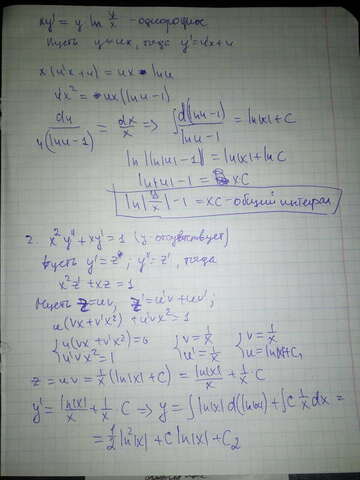 xy' = y ln y/x - однородное
Пусть y=ux, тогда y'=u'x+u
x(u'x+u) = ux ln u
u'x² = ux(ln u -1)
du/u(ln u -1) = dx/x => ∫ d(ln u -1)/ln u -1 = ln|x| + C
ln|ln|u| -1| = ln|x| + ln C
ln|u| -1 = xC
ln|y/x| -1 = xC - общий интеграл
2. x²y'' + xy' = 1 (y отсутствует)
Пусть y' = z; y'' = z', тогда
x²z' + xz = 1
Пусть z = uv, z' = u'v + uv';
u(vx + v'x²) + u'vx² = 1
{u(vx + v'x²) = 0 {v = 1/x {v = 1/x
{u'vx² = 1 {u' = 1/x {u = ln|x| + C,
z = uv = 1/x (ln|x| + C) = ln|x|/x + 1/x · C
y' = ln|x|/x + 1/x · C => y = ∫ ln|x| d(ln|x|) + ∫ C 1/x dx =
= 1/2 ln²|x| + C ln|x| + C₂